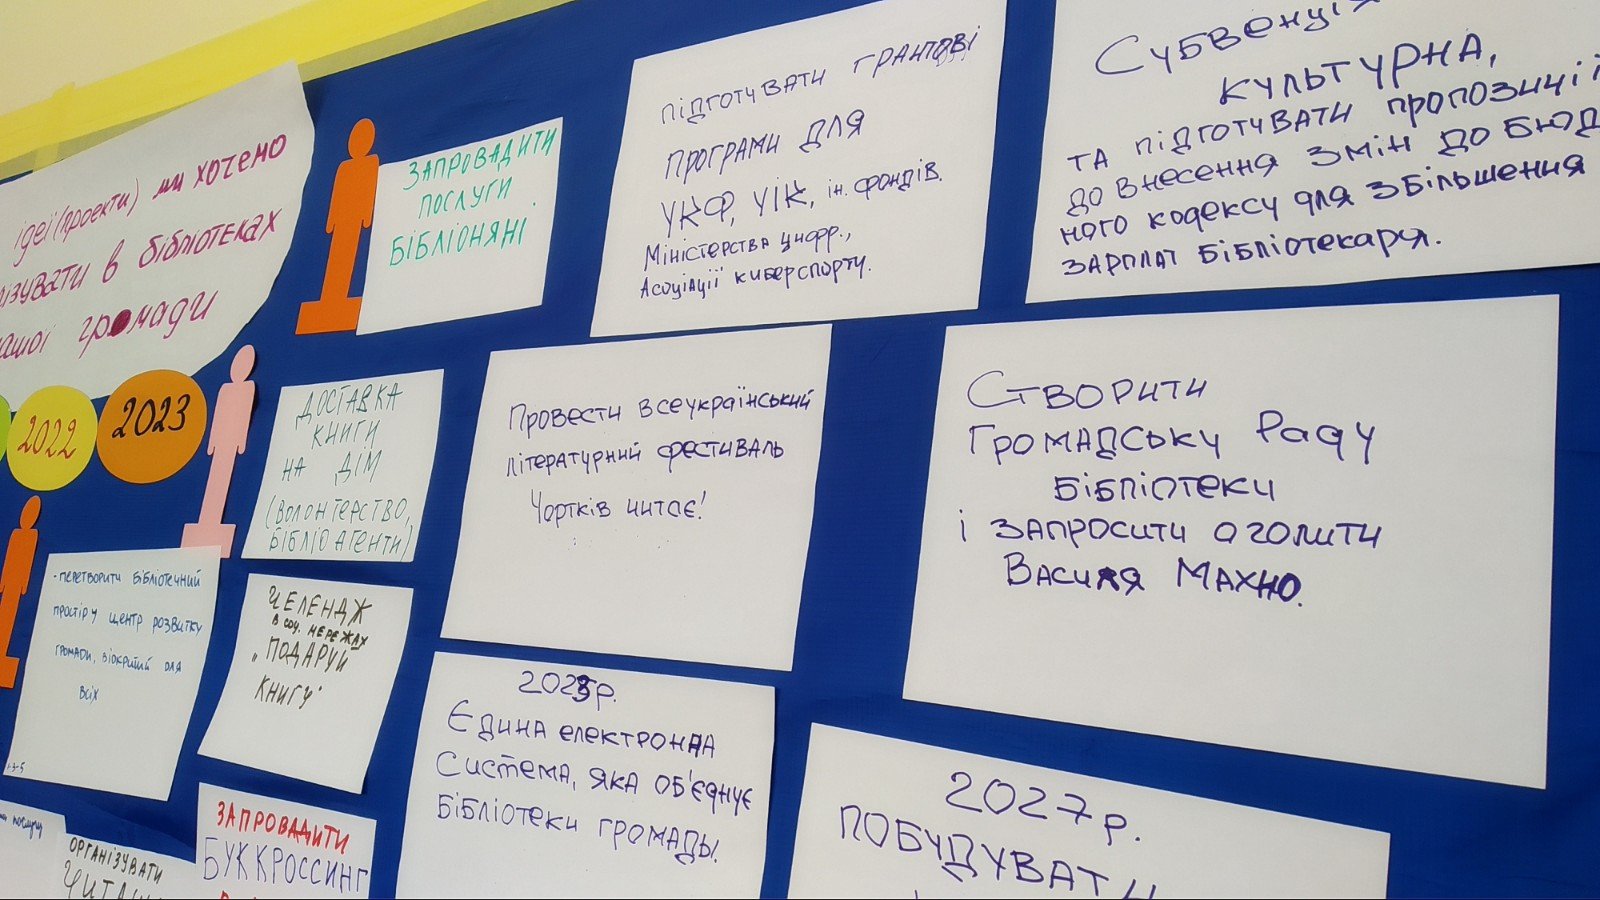 ідеї (проекти) ми хочемо
в бібліотеках
громади
2022
2023
ЗАПРОВАДИТИ
ПОСЛУГИ
БІБЛІОНЯНІ.
ПІДГОТУВАТИ ГРАНТОВІ
ПРОГРАМИ ДЛЯ
УКФ, УІК, ін. фондів.
Міністерства цифр.,
Асоціації киберспорту.
СУБВЕНЦІЯ
КУЛЬТУРНА,
ТА ПІДГОТУВАТИ ПРОПОЗИЦІЇ
ДО ВНЕСЕННЯ ЗМІН ДО БЮД
НОГО КОДЕКСУ ДЛЯ ЗБІЛЬШЕННЯ
ЗАРПЛАТ БІБЛІОТЕКАРЯ.
ДОСТАВКА
КНИГИ
НА ДІМ
(ВОЛОНТЕРСТВО,
БІБЛІОАГЕНТИ)
Провести Всеукраїнський
літературний фестиваль
Чортків читає!
СТВОРИТИ
ГРОМАДСЬКУ РАДУ
БІБЛІОТЕКИ
І ЗАПРОСИТИ ОГОЛИТИ
ВАСИЛЯ МАХНО.
- ПЕРЕТВОРИТИ БІБЛІОТЕЧНИЙ
ПРОСТІР У ЦЕНТР РОЗВИТКУ
ГРОМАДИ, ВІДКРИТИЙ ДЛЯ
ВСІХ
ЧЕЛЕНДЖ
В СОЦ. МЕРЕЖАХ
"ПОДАРУЙ
КНИГУ"
2023р.
ЄДИНА ЕЛЕКТРОННА
СИСТЕМА, ЯКА ОБ'ЄДНУЄ
БІБЛІОТЕКИ ГРОМАДИ.
2027 р.
ПОБУДУВАТИ
ОРГАНІЗУВАТИ
ЗАПРОВАДИТИ
БУККРОССИНГ